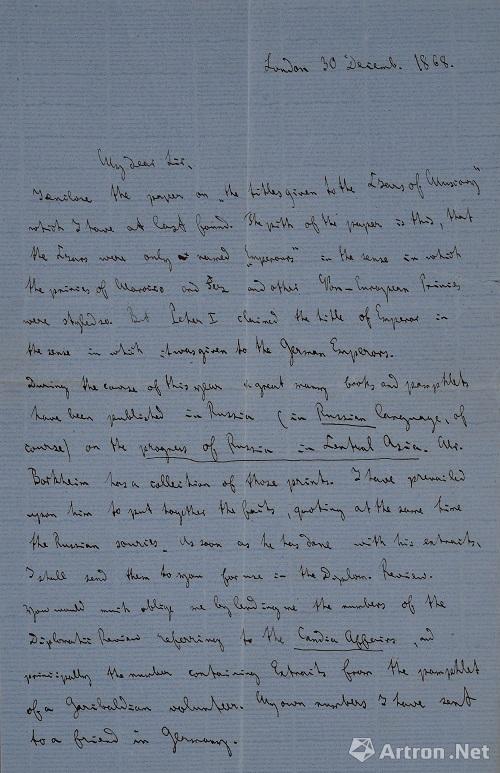 London 30 Decemb. 1868.
My dear Sir,
I enclose the paper on „the titles given to the Tzars of Muscovy"
which I have at last found. The pith of the paper is this, that
the Tzars were only named "Emperors" in the sense in which
the princes of Marocco and Fez and other Non-European Princes
were styled so. But Peter I claimed the title of Emperor in
the sense in which it was given to the German Emperors.
During the course of this year a great many books and pamphlets
have been published in Russia (in Russian language, of
course) on the progress of Russia in Central Asia. Mr.
Borkheim has a collection of those prints. I have prevailed
upon him to put together the facts, quoting at the same time
the Russian sources. As soon as he has done with his extracts,
I shall send them to you for use in the Diplom. Review.
You would much oblige me by lending me the numbers of the
Diplomatic Review referring to the Candia Affairs, and
principally the number containing Extracts from the pamphlet
of a Garibaldian volunteer. My own numbers I have sent
to a friend in Germany.
Artron.Net